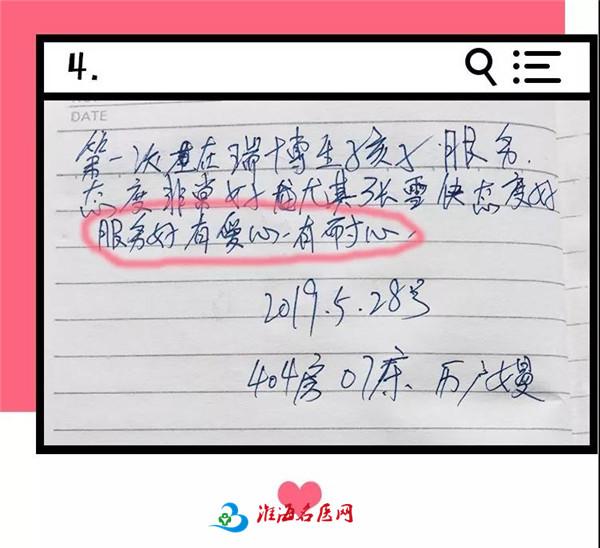 4.
DATE
第一次在瑞博生孩子服务.
态度非常好尤其张雪快态度好
服务好有爱心.有耐心.
2019.5.28号
404房07床
淮海名医网